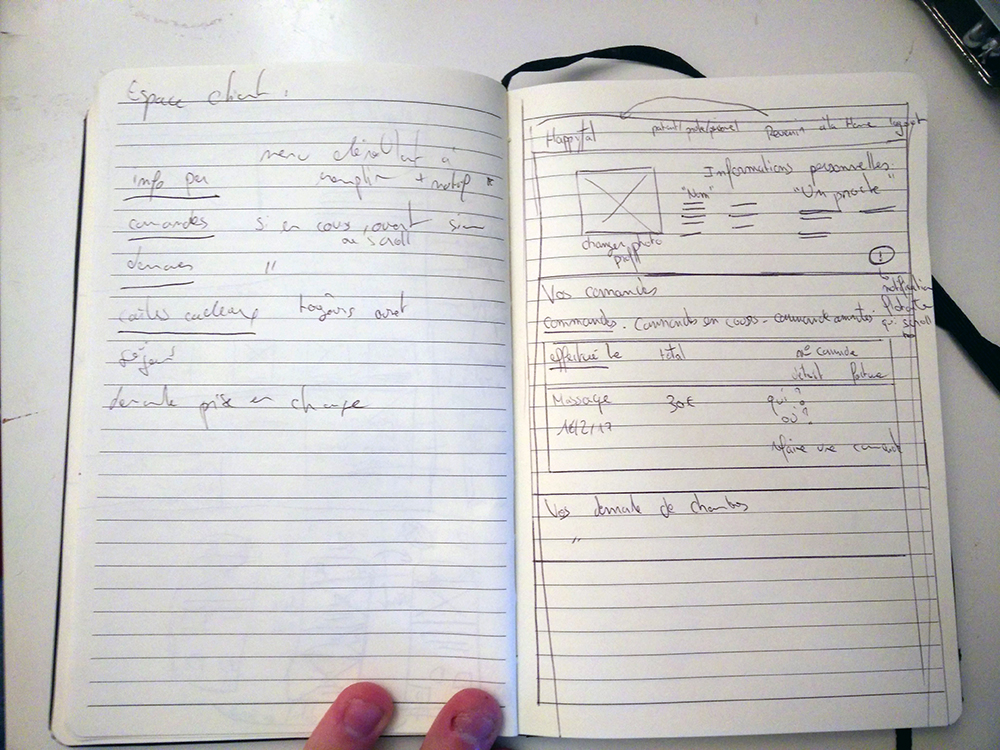 Espace client :
menu déroulant à
info per remplir + notif *
commandes si en cours, ouvert sinon
ou scroll
demandes "
cartes cadeaux toujours ouvert
Séjour
demande prise en charge
Happital patient/proche/personnel Revenir à la Home logout
Informations personnelles.
"Nom" "Un proche"
changer photo
profil
!
Vos commandes notification
flottante
commandes - Commandes en cours - commande annulées qui scroll
effectué le total n° commande
détail facture
Massage 30€ qui ?
16/2/17 où ?
refaire une commande
Vos demande de chambres
"